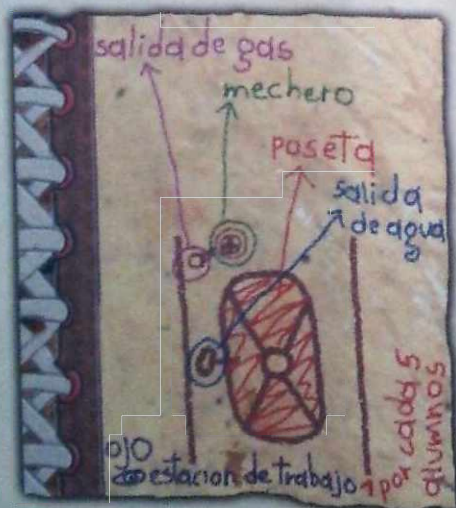 salida de gas
mechero
poseta
salida
de agua
ojo
estacion de trabajo
1 por cada 5
alumnos